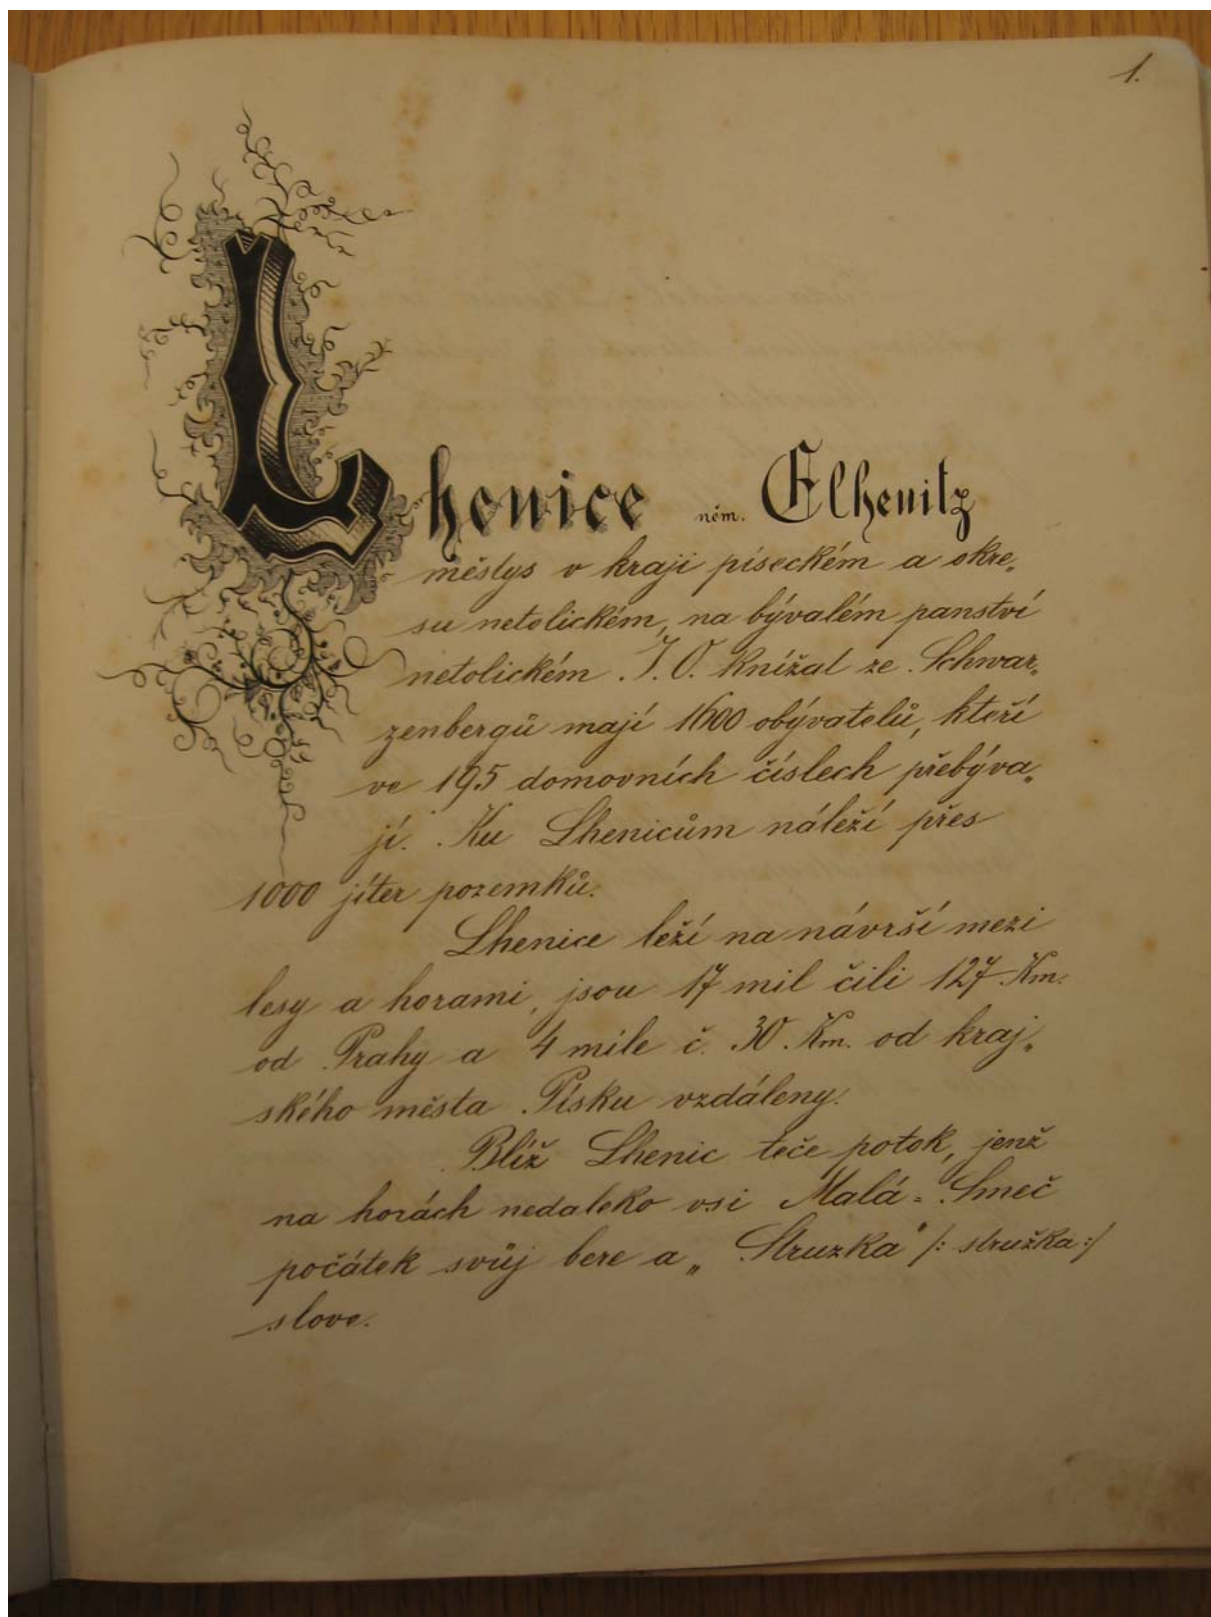 1.
Lhenice něm. Elhenitz
městys v kraji píseckém a okre„
su netolickém, na bývalém panství
netolickém J. O. Knížat ze Schwar„
zenbergů mají 1600 obývatelů, kteří
ve 195 domovních číslech přebýva„
jí. Ku Lhenicům náleží přes
1000 jiter pozemků.
Lhenice leží na návrší mezi
lesy a horami, jsou 17 mil čili 127 Km.
od Prahy a 4 míle č. 30. Km. od kraj„
ského města Písku vzdáleny.
Blíž Lhenic teče potok, jenž
na horách nedaleko vsi Malá = Smeč
počátek svůj bere a „Struzka“ /: stružka :/
slove.